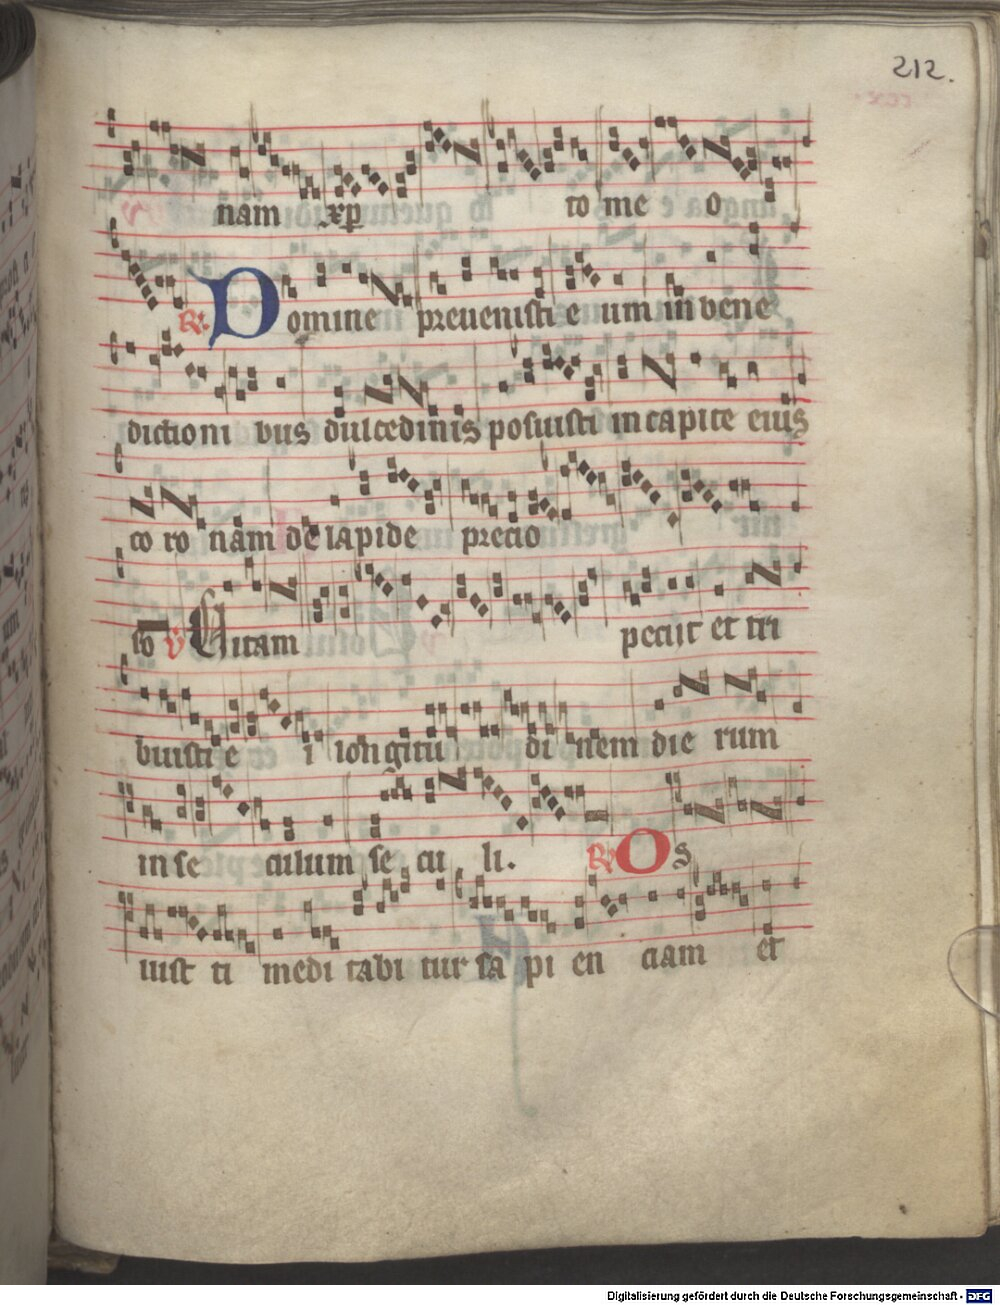 212.
nam xp̄ to me o
R. Domine preuenisti e um in bene
dictioni bus dulcedinis posuisti in capite eius
co ro nam de lapide precio
so v Uitam pecijt et tri
buisti e i longitu di nem die rum
in se culum se cu li.
R Os
iust ti medi tabi tur sa pi en ciam et
Digitalisierung gefördert durch die Deutsche Forschungsgemeinschaft - DFG